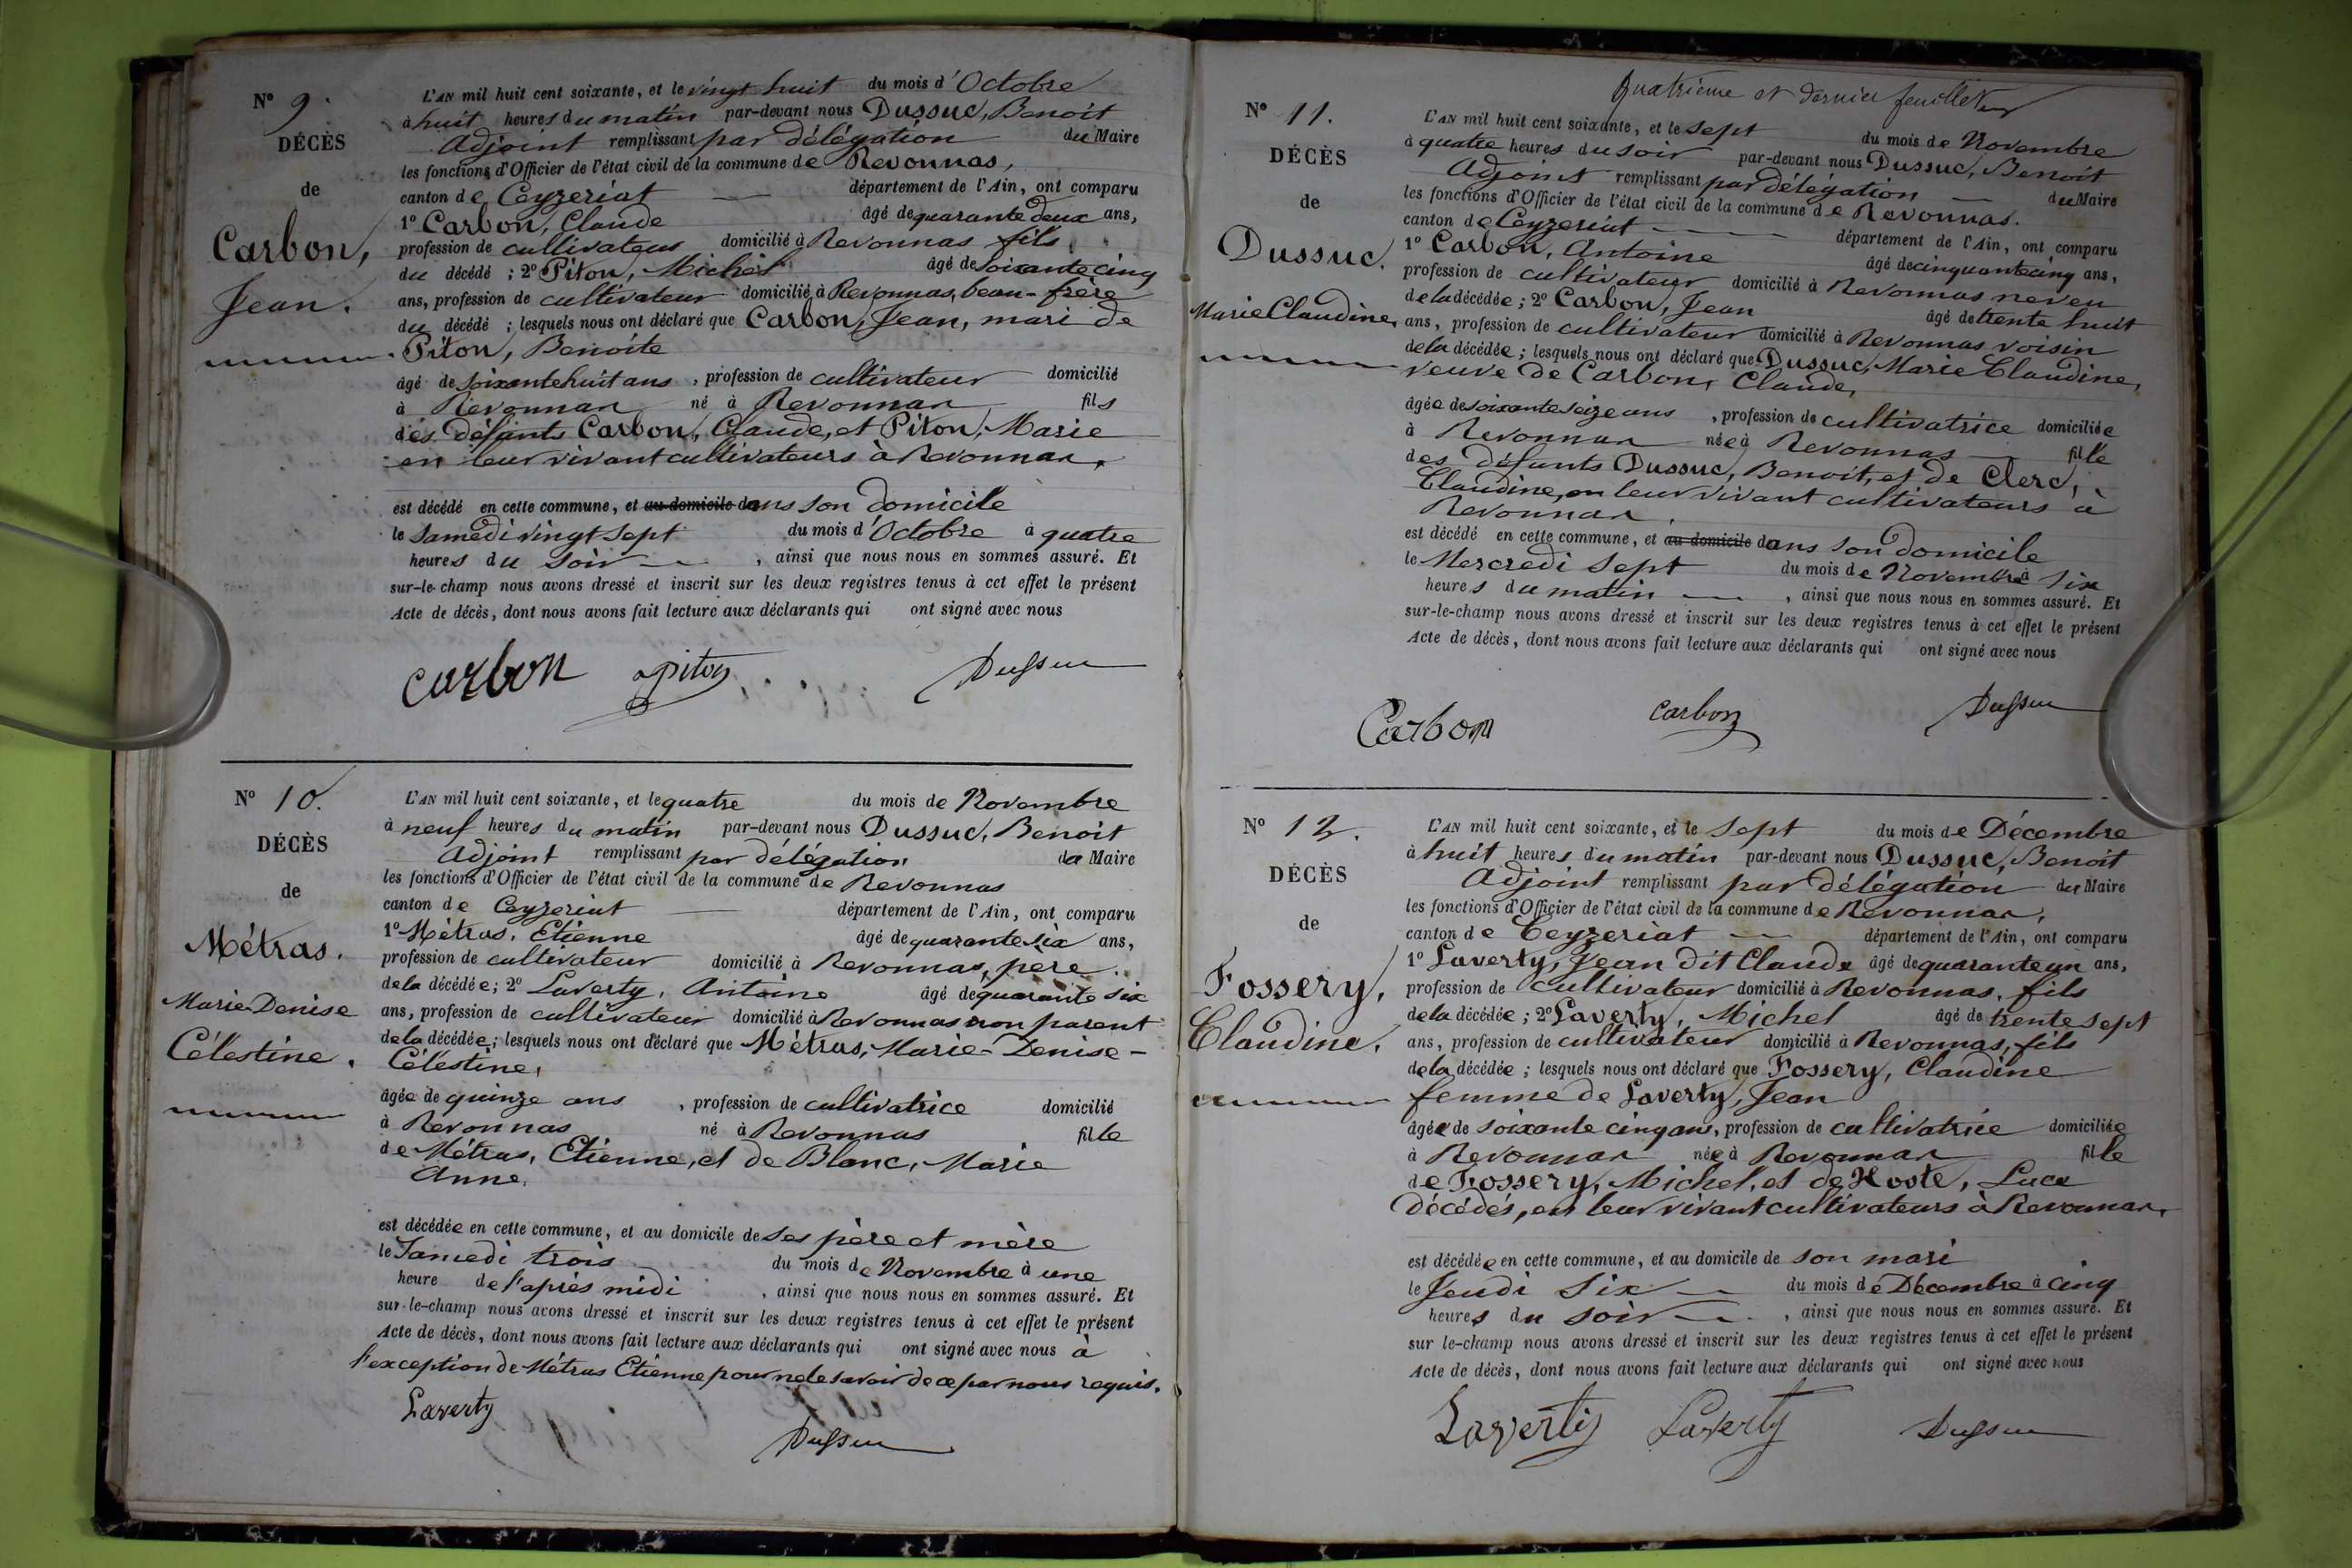 N° 9.
DÉCÈS
de
Carbon,
Jean.
L'AN mil huit cent soixante, et le vingt huit du mois d'Octobre
à huit heures du matin par-devant nous Dussuc, Benoit
Adjoint remplissant par délégation du Maire
les fonctions d'Officier de l'état civil de la commune de Revonnas,
canton de Ceyzeriat département de l'Ain, ont comparu
1° Carbon, Claude âgé de quarante deux ans,
profession de cultivateur domicilié à Revonnas fils
du décédé ; 2° Piton, Michel âgé de soixante cinq
ans, profession de cultivateur domicilié à Revonnas, beau-frère
du décédé ; lesquels nous ont déclaré que Carbon, Jean, mari de
Piton, Benoite
âgé de soixante huit ans, profession de cultivateur domicilié
à Revonnas né à Revonnas fils
des défunts Carbon, Claude, et Piton, Marie
en leur vivant cultivateurs à Revonnas.
est décédé en cette commune, et au domicile dans son domicile
le Samedi vingt sept du mois d'Octobre à quatre
heures du soir, ainsi que nous nous en sommes assuré. Et
sur-le-champ nous avons dressé et inscrit sur les deux registres tenus à cet effet le présent
Acte de décès, dont nous avons fait lecture aux déclarants qui ont signé avec nous
carbon piton Dussuc
N° 10.
DÉCÈS
de
Métras.
Marie Denise
Célestine.
L'AN mil huit cent soixante, et le quatre du mois de Novembre
à neuf heures du matin par-devant nous Dussuc, Benoit
Adjoint remplissant par délégation du Maire
les fonctions d'Officier de l'état civil de la commune de Revonnas
canton de Ceyzeriat département de l'Ain, ont comparu
1° Métras, Etienne âgé de quarante six ans,
profession de cultivateur domicilié à Revonnas, père
de la décédée ; 2° Laverty, Antoine âgé de quarante six
ans, profession de cultivateur domicilié à Revonnas non parent
de la décédée ; lesquels nous ont déclaré que Métras, Marie-Denise-
Célestine,
âgée de quinze ans, profession de cultivatrice domicilié
à Revonnas né à Revonnas fille
de Métras, Etienne, et de Blanc, Marie
Anne.
est décédée en cette commune, et au domicile de ses père et mère
le Samedi trois du mois de Novembre à une
heure de l'après midi, ainsi que nous nous en sommes assuré. Et
sur-le-champ nous avons dressé et inscrit sur les deux registres tenus à cet effet le présent
Acte de décès, dont nous avons fait lecture aux déclarants qui ont signé avec nous à
l'exception de Métras Etienne pour ne le savoir de ce par nous requis.
Laverty
Dussuc
Quatrième et dernier feuillet
N° 11.
DÉCÈS
de
Dussuc.
Marie Claudine,
L'AN mil huit cent soixante, et le sept du mois de Novembre
à quatre heures du soir par-devant nous Dussuc, Benoit
Adjoint remplissant par délégation du Maire
les fonctions d'Officier de l'état civil de la commune de Revonnas.
canton de Ceyzeriat département de l'Ain, ont comparu
1° Carbon, Antoine âgé de cinquante cinq ans,
profession de cultivateur domicilié à Revonnas neveu
de la décédée ; 2° Carbon, Jean âgé de trente huit
ans, profession de cultivateur domicilié à Revonnas voisin
de la décédée ; lesquels nous ont déclaré que Dussuc, Marie Claudine,
veuve de Carbon, Claude,
âgée de soixante seize ans, profession de cultivatrice domiciliée
à Revonnas née à Revonnas fille
des défunts Dussuc, Benoit, et de Clerc,
Claudine, en leur vivant cultivateurs à
Revonnas.
est décédé en cette commune, et au domicile dans son domicile
le Mercredi sept du mois de Novembre à six
heures du matin, ainsi que nous nous en sommes assuré. Et
sur-le-champ nous avons dressé et inscrit sur les deux registres tenus à cet effet le présent
Acte de décès, dont nous avons fait lecture aux déclarants qui ont signé avec nous
Carbon carbon Dussuc
N° 12.
DÉCÈS
de
Fossery,
Claudine.
L'AN mil huit cent soixante, et le sept du mois de Décembre
à huit heures du matin par-devant nous Dussuc, Benoit
Adjoint remplissant par délégation du Maire
les fonctions d'Officier de l'état civil de la commune de Revonnas,
canton de Ceyzeriat département de l'Ain, ont comparu
1° Laverty, Jean dit Claude âgé de quarante un ans,
profession de cultivateur domicilié à Revonnas, fils
de la décédée ; 2° Laverty, Michel âgé de trente sept
ans, profession de cultivateur domicilié à Revonnas, fils
de la décédée ; lesquels nous ont déclaré que Fossery, Claudine
femme de Laverty, Jean
âgée de soixante cinq ans, profession de cultivatrice domiciliée
à Revonnas née à Revonnas fille
de Fossery, Michel, et de Hoste, Luce
décédés, en leur vivant cultivateurs à Revonnas.
est décédée en cette commune, et au domicile de son mari
le Jeudi six du mois de Décembre à cinq
heures du soir, ainsi que nous nous en sommes assuré. Et
sur le-champ nous avons dressé et inscrit sur les deux registres tenus à cet effet le présent
Acte de décès, dont nous avons fait lecture aux déclarants qui ont signé avec nous
Laverty Laverty Dussuc